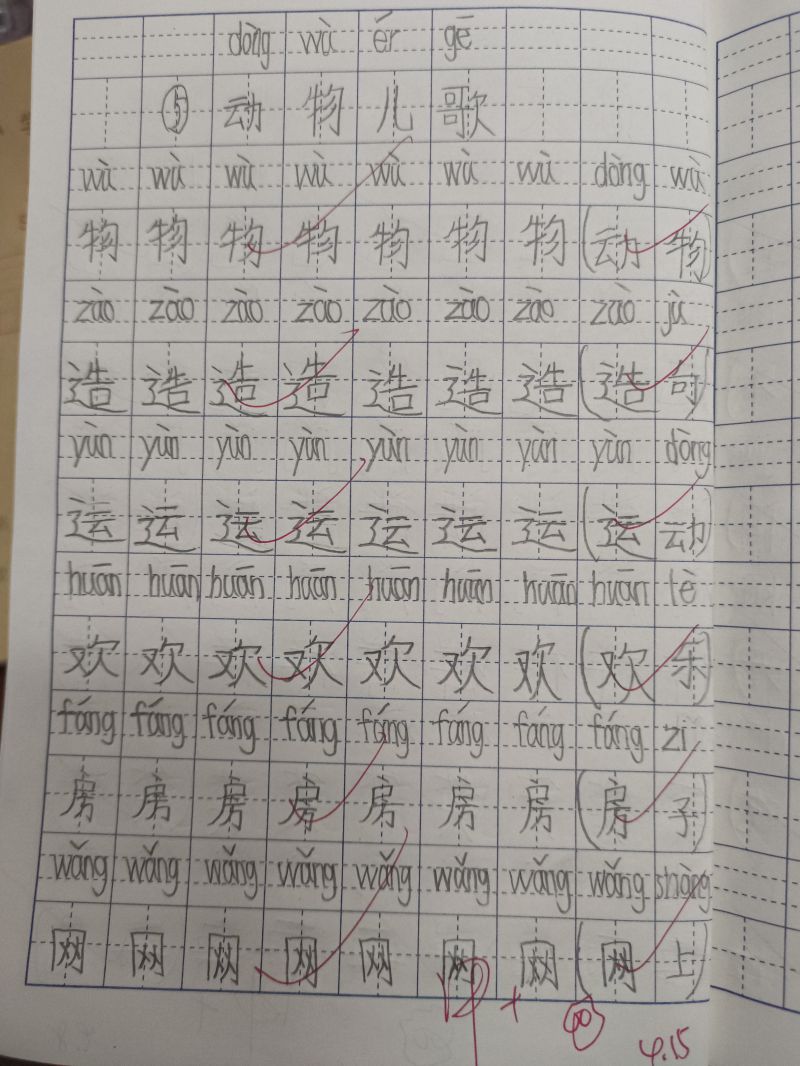 dòng wù ér gē
⑤ 动物儿歌
wù wù wù wù wù wù wù dòng wù
物 物 物 物 物 物 物 (动物)
zào zào zào zào zào zào zào zào jù
造 造 造 造 造 造 造 (造句)
yùn yùn yùn yùn yùn yùn yùn yùn dòng
运 运 运 运 运 运 运 (运动)
huān huān huān huān huān huān huān huān lè
欢 欢 欢 欢 欢 欢 欢 (欢乐)
fáng fáng fáng fáng fáng fáng fáng fáng zi
房 房 房 房 房 房 房 (房子)
wǎng wǎng wǎng wǎng wǎng wǎng wǎng wǎng shàng
网 网 网 网 网 网 网 (网上)
4.15